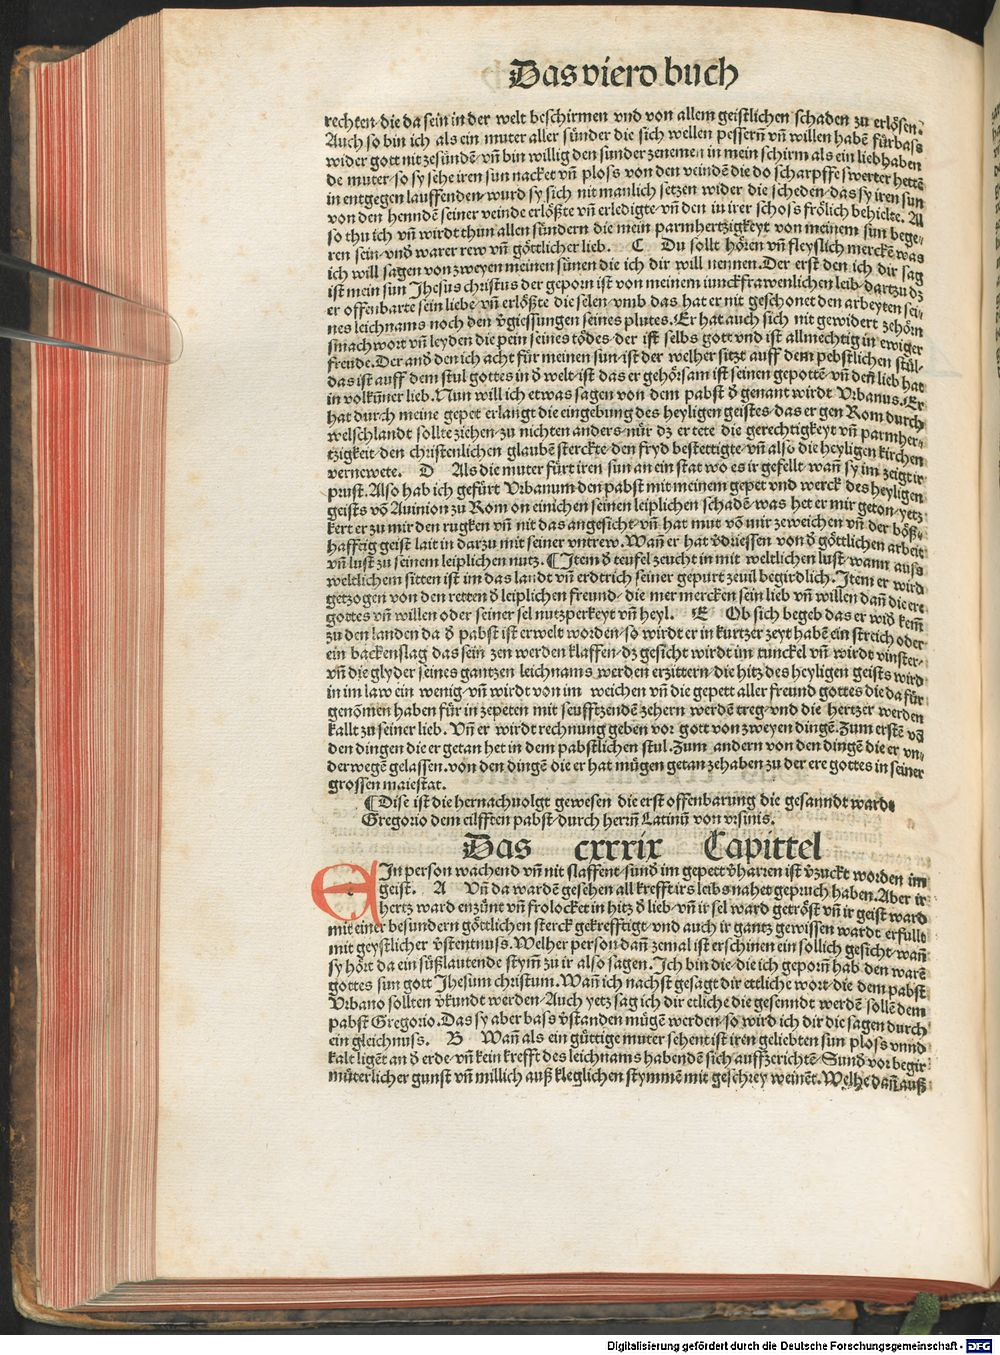 Das vierd buch
rechten/die da sein in der welt beschirmen vnd von allem geistlichen schaden zu erlösen.
Auch so bin ich als ein muter aller sünder die sich wellen pessern̄ vn̄ willen habē fürbass
wider gott nit zesündē/vn̄ bin willig den sunder zenemen in mein schirm als ein liebhaben
de muter/so sy sehe iren sun nacket vn̄ ploss von den veindē die do scharpffe swerter hettē
in entgegen lauffenden/wurd sy sich nit manlich setzen wider die scheden/das sy iren sun
von den henndē seiner veinde erlößte vn̄ erledigte/vn̄ den in irer schoss frölich behielte. Al
so thu ich vn̄ wirdt thun allen sündern die mein parmhertzigkeyt von meinem sun bege/
ren sein/vnd warer rew vn̄ göttlicher lieb. C Du sollt hören vn̄ fleyslich merckē was
ich will sagen von zweyen meinen sünen die ich dir will nennen. Der erst den ich dir sag
ist mein sun Jhesus christus der geporn ist von meinem iunckfrawenlichen leib/dartzu dz
er offenbarte sein liebe vn̄ erlößte die selen/vmb das hat er nit geschonet den arbeyten sei/
nes leichnams noch den v̄giessungen seines plutes. Er hat auch sich nit gewidert zehörn
smachwort vn̄ leyden die pein seines tödes/der ist selbs gott vnd ist allmechtig in ewiger
freude. Der and̄ den ich acht für meinen sun/ist der welher sitzt auff dem pebstlichen stül/
das ist auff dem stul gottes in d̄ welt/ist das er gehörsam ist seinen gepottē/vn̄ den̄ lieb hat
in volkūner lieb. Nun will ich etwas sagen von dem pabst d̄ genant wirdt Vrbanus. Er
hat durch meine gepet erlangt die eingebung des heyligen geistes/das er gen Rom durch
welschlandt sollte ziehen/zu nichten anders/nür dz er tete die gerechtigkeyt vn̄ parmher/
tzigkeit/den christenlichen glaubē sterckte/den fryd bestettigte/vn̄ also die heyligen kirchen
vernewete. D Als die muter fürt iren sun an ein stat wo es ir gefellt/wan̄ sy im zeigt ir
prust. Also hab ich gefürt Vrbanum den pabst mit meinem gepet vnd werck des heyligen
geists vō Auinion zu Rom on einichen seinen leiplichen schadē/was het er mir geton/yetz
kert er zu mir den rugken vn̄ nit das angesicht/vn̄ hat mut vō mir zeweichen vn̄ der böß/
hafftig geist lait in darzu mit seiner vntrew. Wan̄ er hat v̄driessen von d̄ göttlichen arbeit
vn̄ lust zu seinem leiplichen nutz. ¶ Item d̄ teufel zeucht in mit weltlichen lust/wann auss
weltlichem sitten ist im das landt vn̄ erdtrich seiner gepurt zeuil begirdlich. Item er wird
getzogen von den retten d̄ leiplichen freund/die mer mercken sein lieb vn̄ willen dan̄ die ere
gottes vn̄ willen oder seiner sel nutzperkeyt vn̄ heyl. E Ob sich begeb das er wid̄ kem̄
zu den landen da d̄ pabst ist erwelt worden/so wirdt er in kurtzer zeyt habē ein streich oder
ein backenslag das sein zen werden klaffen/dz gesicht wirdt im tunckel vn̄ wirdt vinster/
vn̄ die glyder seines gantzen leichnams werden erzittern/die hitz des heyligen geists wird
in im law ein wenig/vn̄ wirdt von im weichen vn̄ die gepett aller freund gottes die da für
genōmen haben für in zepeten mit seufftzendē zehern werdē treg/vnd die hertzer werden
kallt zu seiner lieb. Vn̄ er wirdt rechnung geben vor gott von zweyen dingē. Zum erstē vō
den dingen die er getan het in dem pabstlichen stul. Zum andern von den dingē die er vn/
derwegē gelassen. von den dingē die er hat mügen getan zehaben zu der ere gottes in seiner
grossen maiestat.
¶ Dise ist die hernachuolgt gewesen die erst offenbarung die gesanndt warde
Gregorio dem eilfften pabst/durch hern̄ Latinū von vrsinis.
Das cxxxix Capittel
EIn person wachend vn̄ nit slaffent/sund̄ im gepett v̄harren ist v̄zuckt worden im
geist. A Vn̄ da wardē gesehen all krefft irs leibs nahet gepruch haben. Aber ir
hertz ward enzünt vn̄ frolocket in hitz d̄ lieb/vn̄ ir sel ward getröst vn̄ ir geist ward
mit einer besundern göttlichen sterck gekrefftigt vnd auch ir gantz gewissen wardt erfullt
mit geystlicher v̄stentnuss. Welher person dan̄ zemal ist erschinen ein sollich gesicht/wan̄
sy hört da ein süßlautende stym̄ zu ir also sagen. Ich bin die/die ich geporn̄ hab den warē
gottes sun gott Jhesum christum. Wan̄ ich nachst gesagt dir ettliche wort/die dem pabst
Vrbano sollten v̄kundt werden/Auch yetz sag ich dir etliche die gesenndt werdē sollē dem
pabst Gregorio. Das sy aber bass v̄standen mügē werden/so wird ich dir die sagen durch
ein gleichnuss. B Wan̄ als ein güttige muter sehent ist iren geliebten sun ploss vnnd
kalt ligēt an d̄ erde/vn̄ kein krefft des leichnams habendē sich auffzerichtē/Sund̄ vor begir
müterlicher gunst vn̄ millich auß kleglichen stymmē mit geschrey weinēt. Welhe dan̄ auß
Digitalisierung gefördert durch die Deutsche Forschungsgemeinschaft - DFG